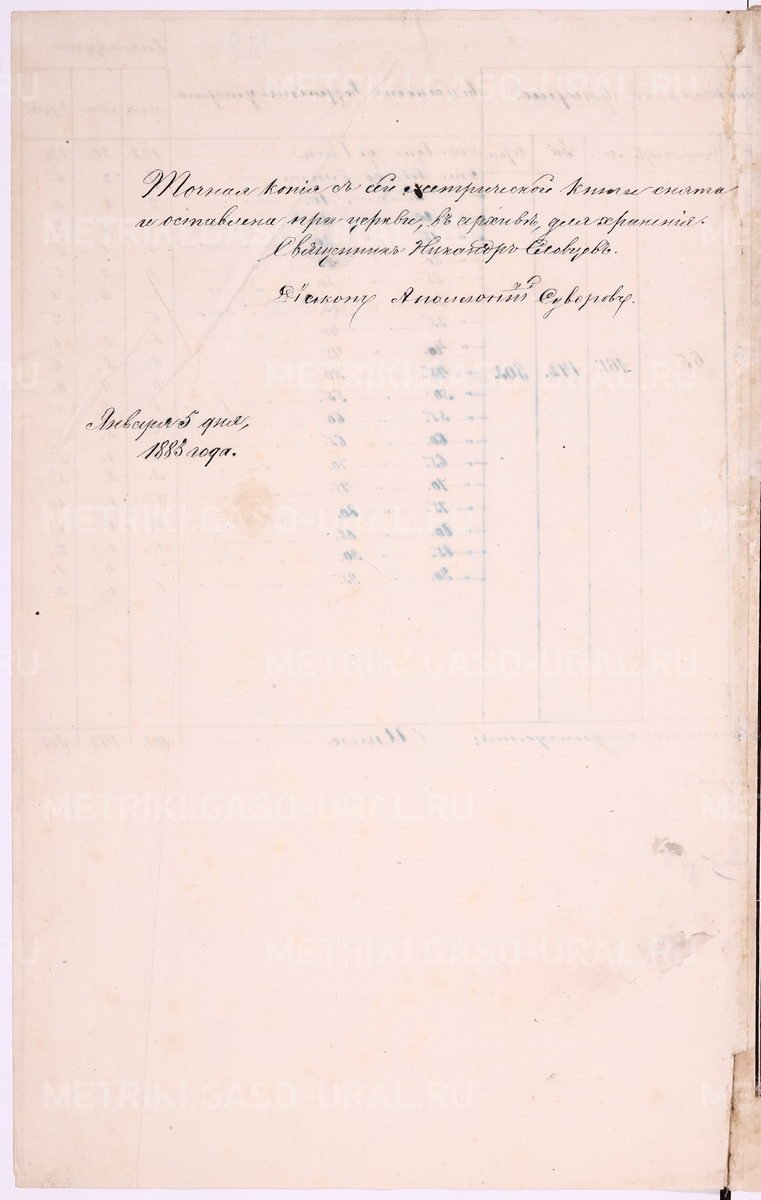 Точная копія съ сей метрической книги снята
и оставлена при церкви, въ архивѣ, для храненія.
Священникъ Никандръ Словцовъ.
Діаконъ Аполлоній Суворовъ.
Января 5 дня,
1883 года.
METRIKI.GASO-URAL.RU